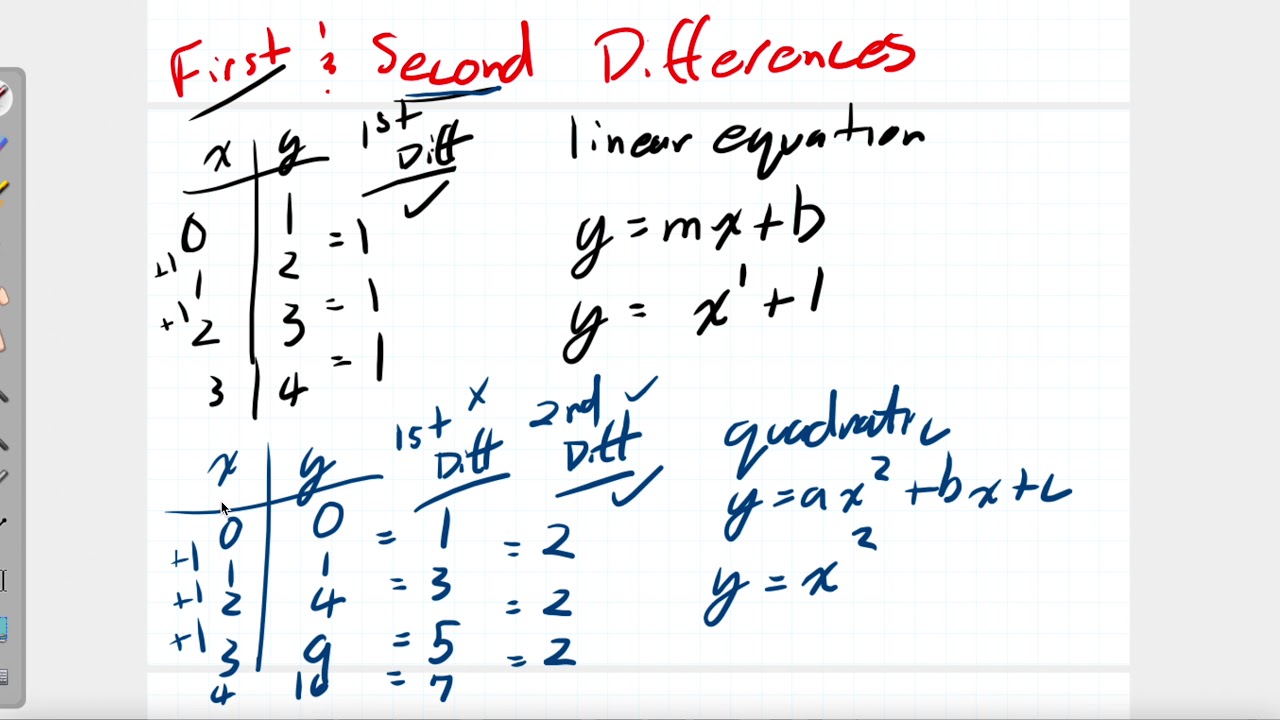 First & Second Differences
x y 1st Diff ✓
0 1 = 1
+1
1 2 = 1
+1
2 3 = 1
3 4
linear equation
y = mx + b
y = x¹ + 1
x y 1st Diff × 2nd Diff ✓ ✓
0 0 = 1 = 2
+1
1 1 = 3 = 2
+1
2 4 = 5 = 2
+1
3 9 = 7
4 16
quadratic
y = ax² + bx + c
y = x²